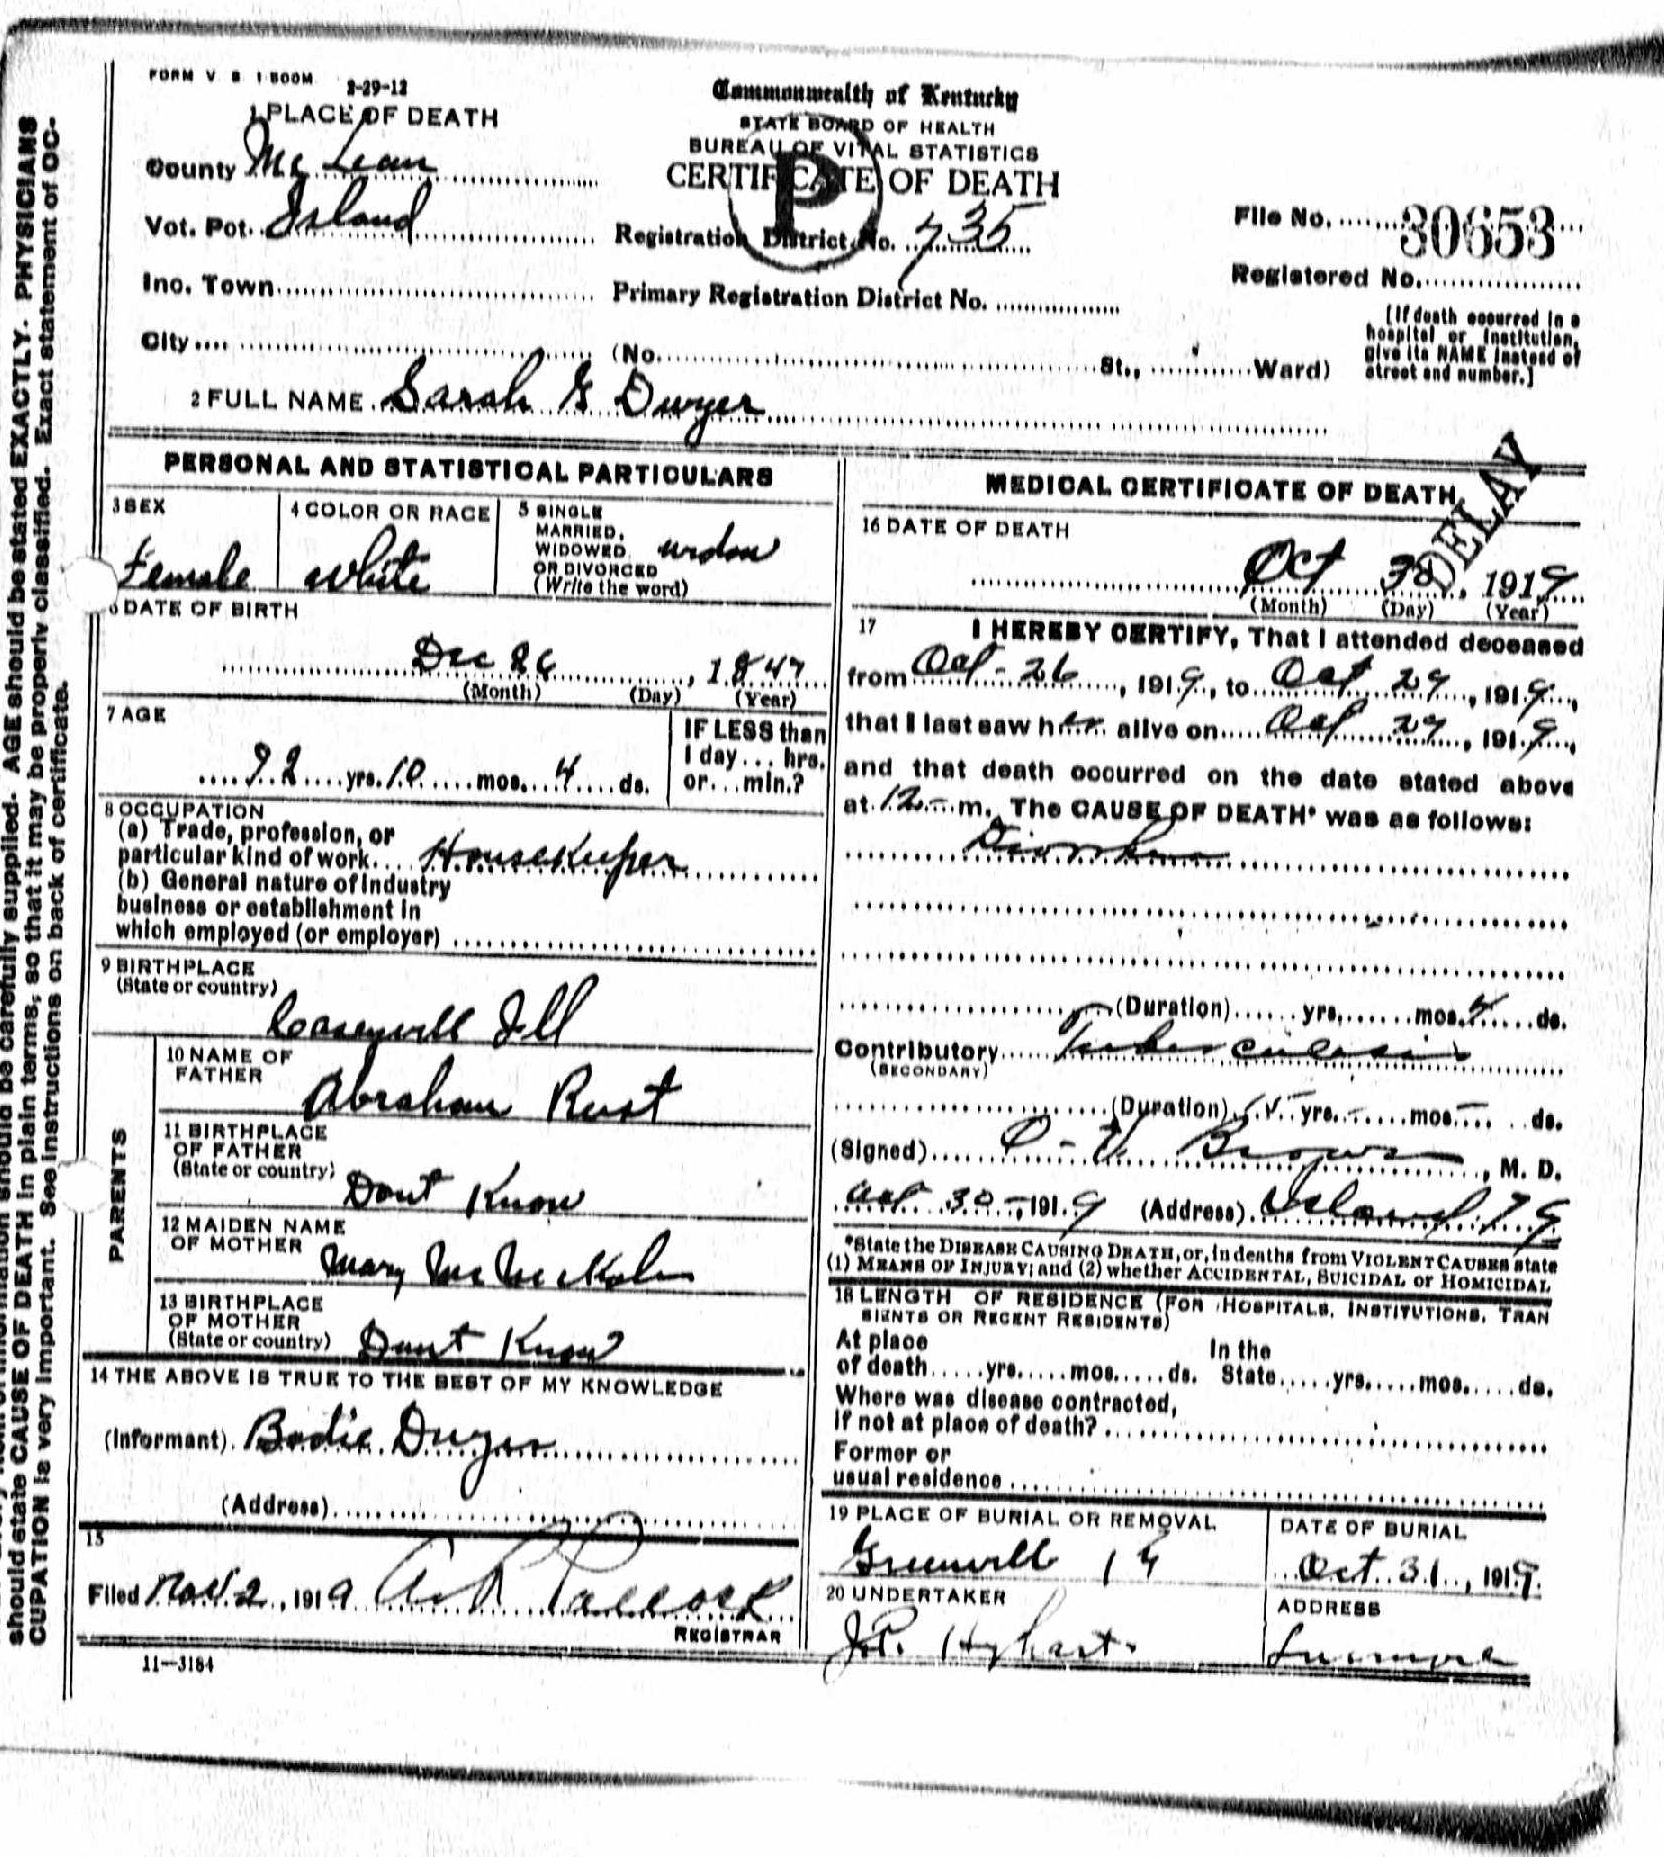 FORM V. S. 1-500M. 2-29-12
Commonwealth of Kentucky
STATE BOARD OF HEALTH
BUREAU OF VITAL STATISTICS
CERTIFICATE OF DEATH
P
1 PLACE OF DEATH
County Mc Lean
Vot. Pct. Island
Registration District No. 735
File No. 30653
Inc. Town
Primary Registration District No.
Registered No.
City (No. St., Ward)
[If death occurred in a
hospital or institution,
give its NAME instead of
street and number.]
2 FULL NAME Sarah G Dwyer
PERSONAL AND STATISTICAL PARTICULARS
3 SEX
Female
4 COLOR OR RACE
White
5 SINGLE
MARRIED,
WIDOWED
OR DIVORCED
(Write the word)
6 DATE OF BIRTH
Dec 26, 1847
(Month) (Day) (Year)
7 AGE
yrs. 10 mos. 4 ds.
IF LESS than
1 day... hrs.
or... min.?
8 OCCUPATION
(a) Trade, profession, or
particular kind of work Housekeeper
(b) General nature of industry
business or establishment in
which employed (or employer)
9 BIRTHPLACE
(State or country)
Ill
PARENTS
10 NAME OF
FATHER
Abraham Rust
11 BIRTHPLACE
OF FATHER
(State or country)
Dont Know
12 MAIDEN NAME
OF MOTHER
Mary
13 BIRTHPLACE
OF MOTHER
(State or country)
Dont Know
14 THE ABOVE IS TRUE TO THE BEST OF MY KNOWLEDGE
(Informant) Dwyer
(Address)
15
Filed Nov. 2, 1919
REGISTRAR
11—3184
MEDICAL CERTIFICATE OF DEATH
DELAY
16 DATE OF DEATH
Oct 30, 1919
(Month) (Day) (Year)
17 I HEREBY CERTIFY, That I attended deceased
from Oct - 26, 1919, to Oct 29, 1919,
that I last saw her alive on Oct 29, 1919,
and that death occurred on the date stated above
at 12 m. The CAUSE OF DEATH* was as follows:
(Duration) yrs. mos. 4 ds.
Contributory Tuberculosis
(SECONDARY)
(Duration) yrs. mos. ds.
(Signed) Brown, M. D.
Oct 30 - 1919 (Address) Island
*State the DISEASE CAUSING DEATH, or, in deaths from VIOLENT CAUSES state
(1) MEANS OF INJURY; and (2) whether ACCIDENTAL, SUICIDAL or HOMICIDAL
18 LENGTH OF RESIDENCE (FOR HOSPITALS, INSTITUTIONS, TRAN
SIENTS OR RECENT RESIDENTS)
At place In the
of death yrs. mos. ds. State yrs. mos. ds.
Where was disease contracted,
if not at place of death?
Former or
usual residence
19 PLACE OF BURIAL OR REMOVAL
DATE OF BURIAL
Oct. 31, 1919.
20 UNDERTAKER
ADDRESS
should state CAUSE OF DEATH in plain terms, so that it may be properly classified. Exact statement of OC-
CUPATION is very important. See instructions on back of certificate.
should be carefully supplied. AGE should be stated EXACTLY. PHYSICIANS